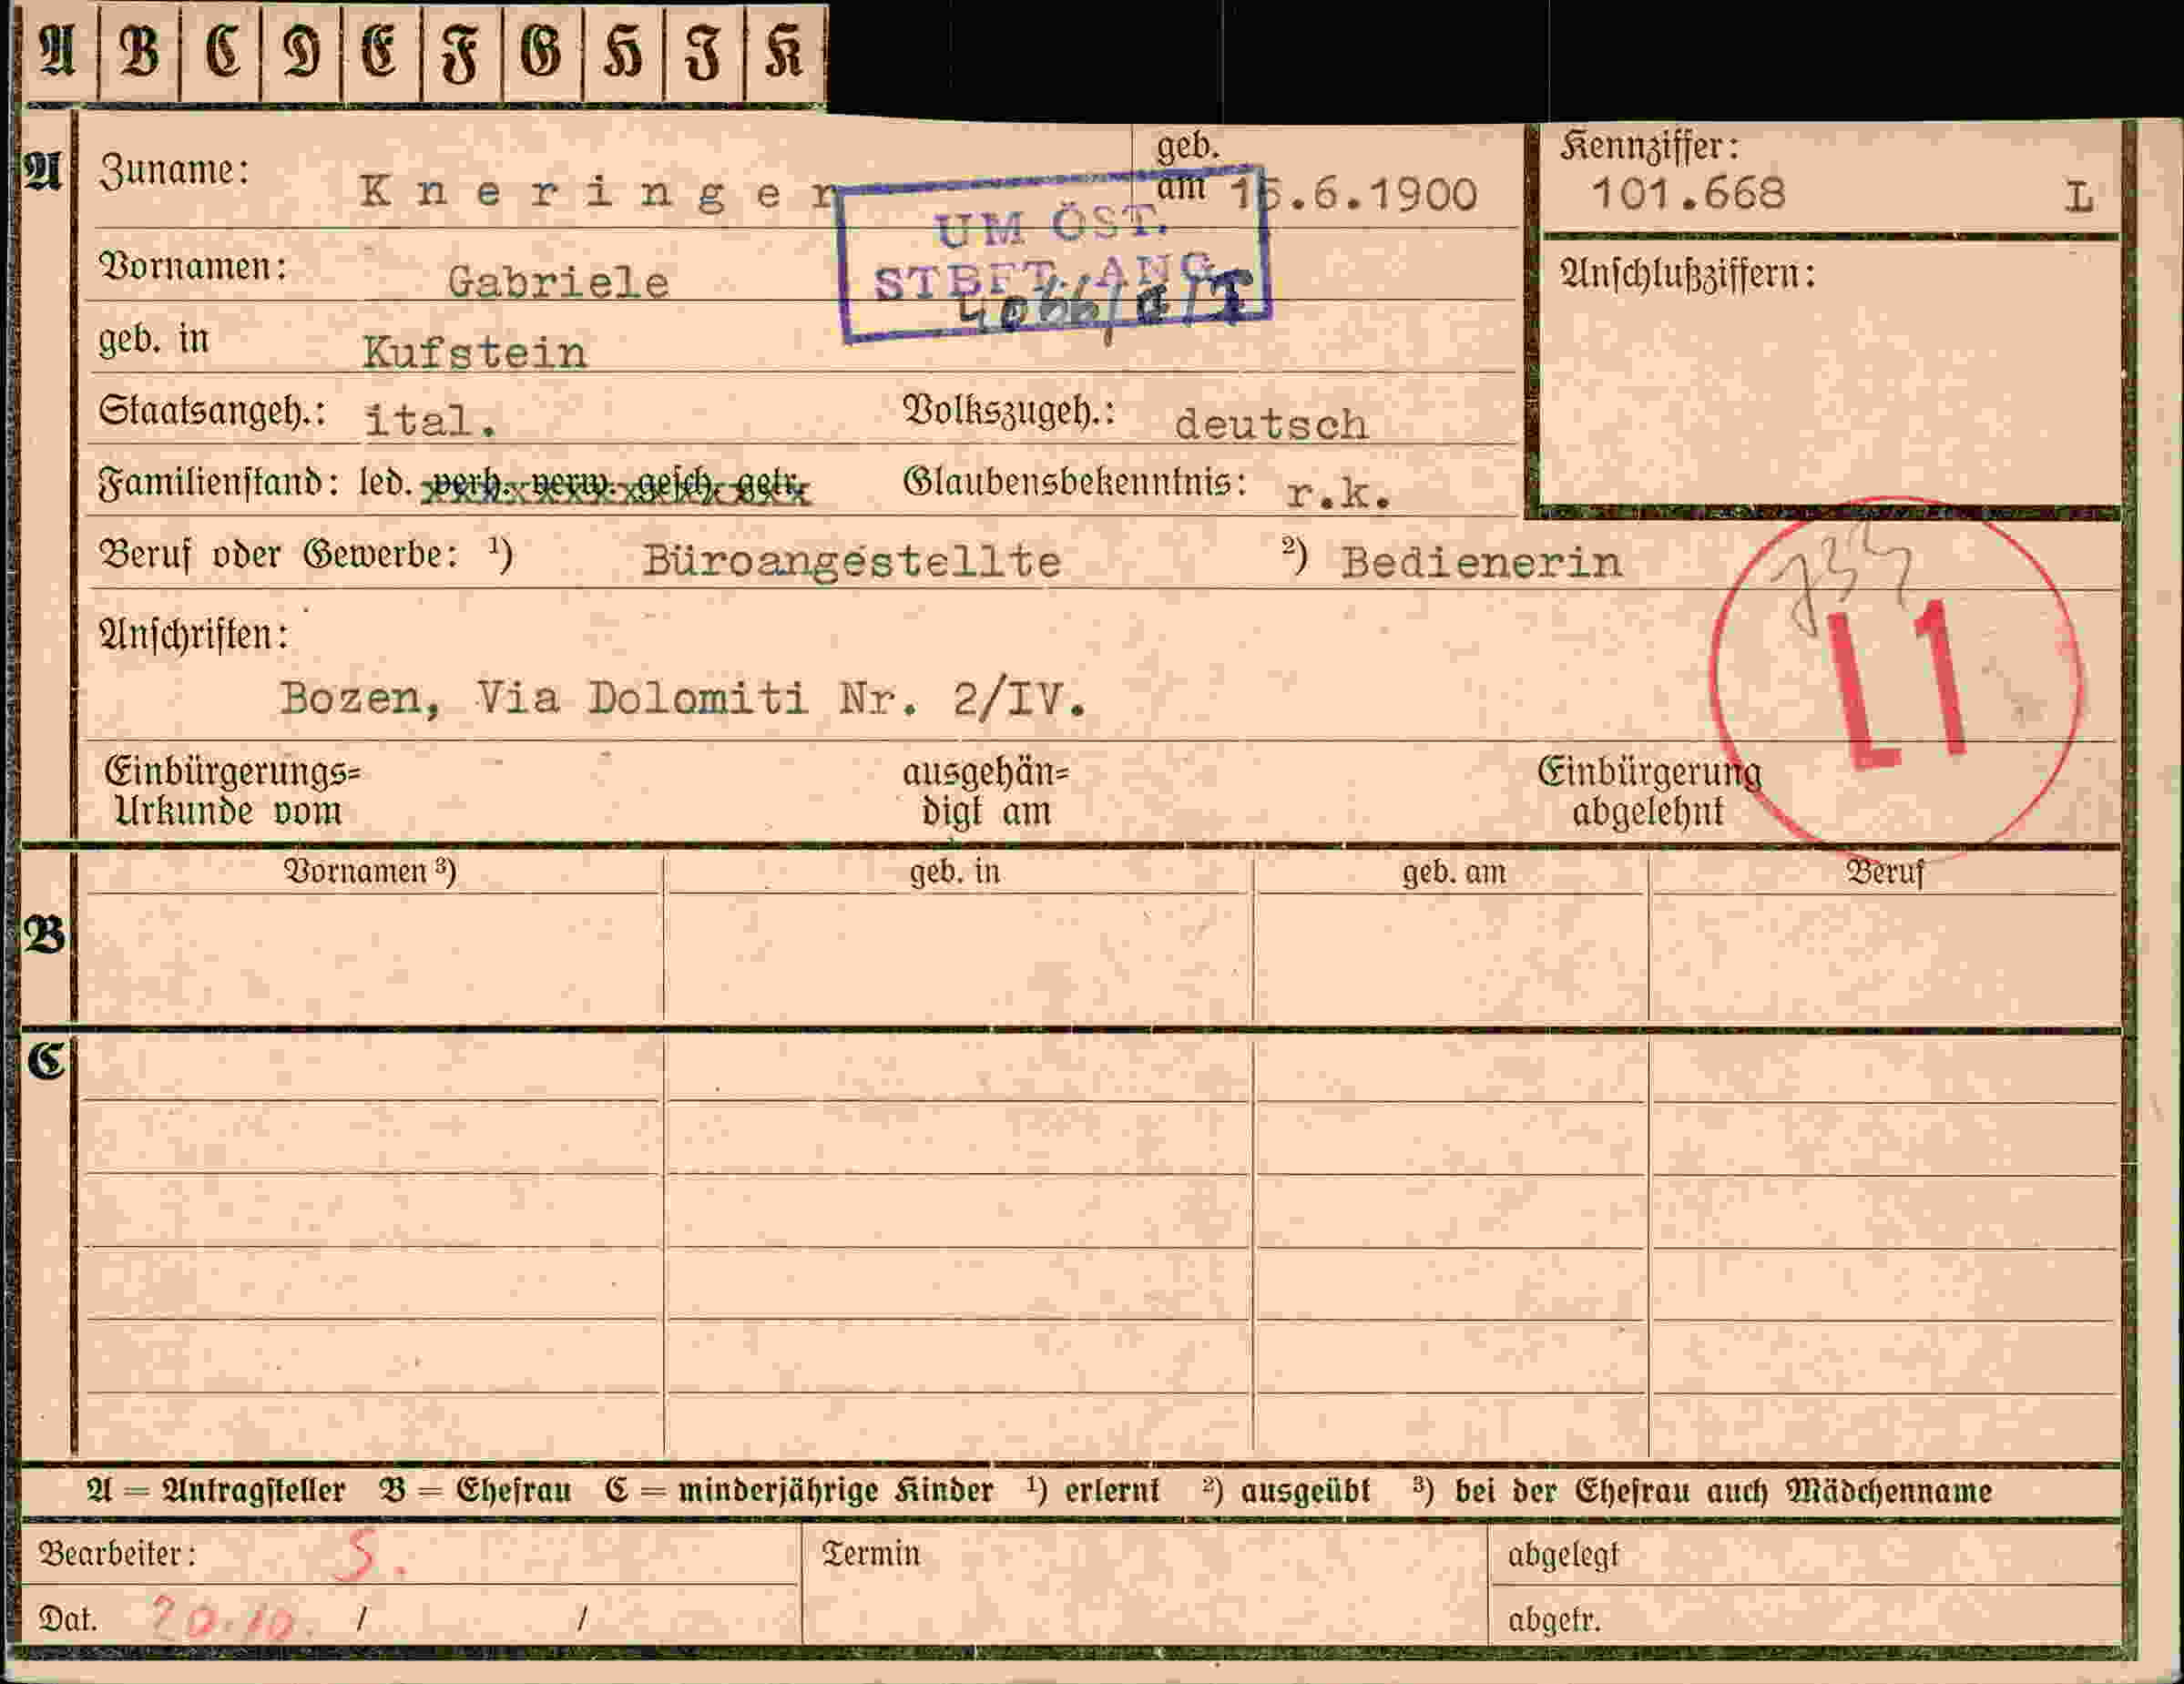 A B C D E F G H I K
A Zuname: Kneringer geb. am 15.6.1900 Kennziffer: 101.668 L
UM ÖST. STBFT. ANG.
Vornamen: Gabriele Anschlußziffern:
geb. in Kufstein
Staatsangeh.: ital. Volkszugeh.: deutsch
Familienstand: led. verh. verw. gesch. getr. Glaubensbekenntnis: r.k.
Beruf oder Gewerbe: ¹) Büroangestellte ²) Bedienerin
L1
Anschriften:
Bozen, Via Dolomiti Nr. 2/IV.
Einbürgerungs= ausgehän= Einbürgerung
Urkunde vom digt am abgelehnt
Vornamen ³) geb. in geb. am Beruf
B
C
A = Antragsteller B = Ehefrau C = minderjährige Kinder ¹) erlernt ²) ausgeübt ³) bei der Ehefrau auch Mädchenname
Bearbeiter: S. Termin abgelegt
Dat. 20.10. / / abgetr.